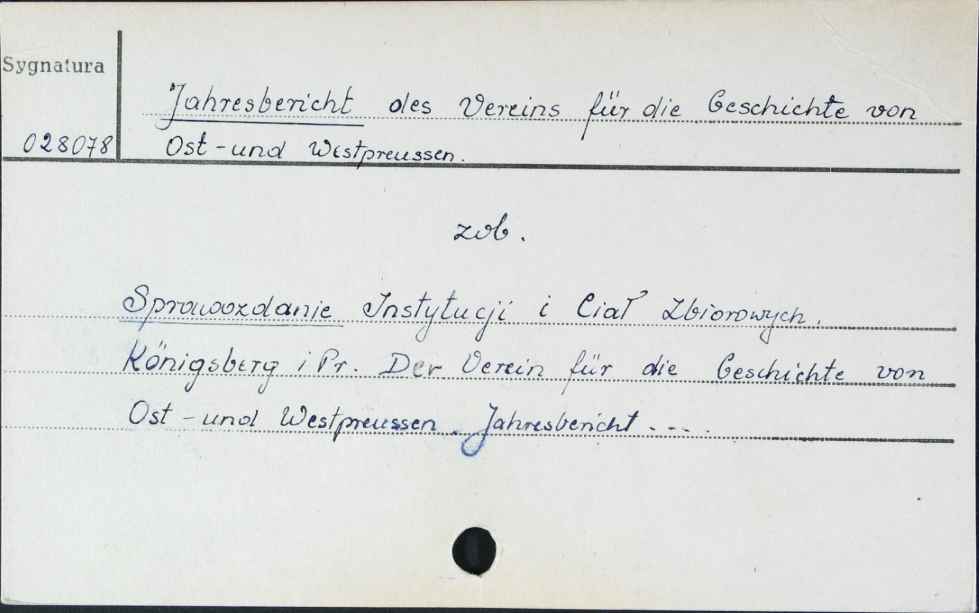 Sygnatura
Jahresbericht des Vereins für die Geschichte von
028078
Ost-und Westpreussen.
zob.
Sprawozdanie Instytucji i Ciał Zbiorowych.
Königsberg i Pr. Der Verein für die Geschichte von
Ost-und Westpreussen. Jahresbericht....